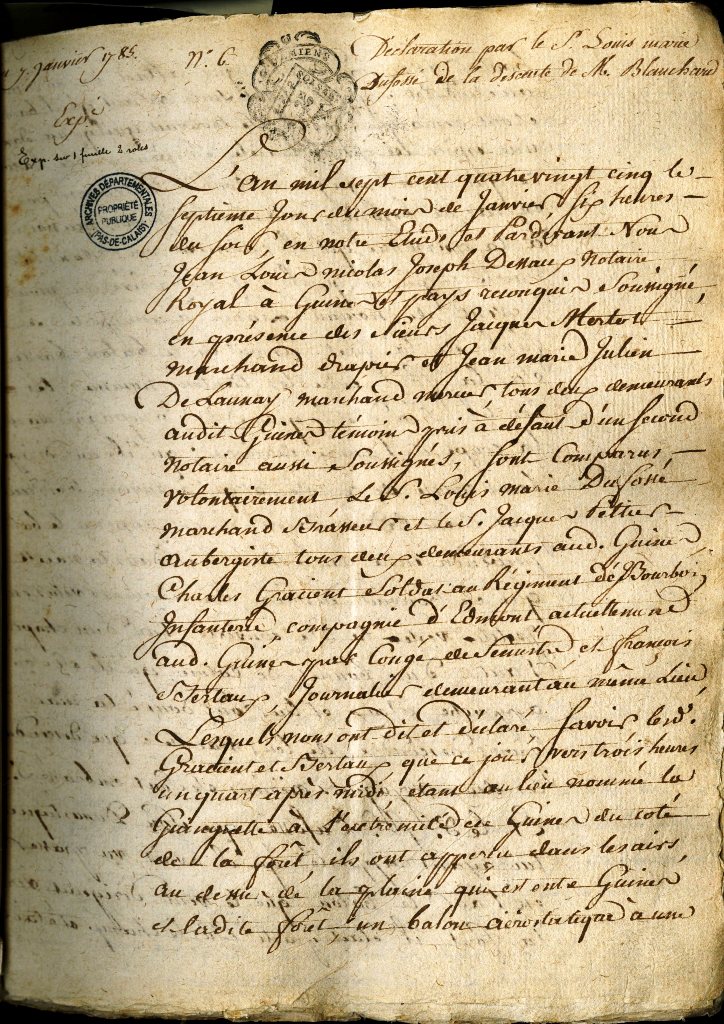 7. Janvier 1785.
N.º 6.
Déclaration par le S. Louis marie
Dufossé de la descente de M. Blanchard
Expé
Exp. sur 1 feuille 2 roles
AMIENS
SOISSONS
ARCHIVES DÉPARTEMENTALES
PROPRIÉTÉ
PUBLIQUE
(PAS-DE-CALAIS)
L'an mil sept cent quatrevingt cinq le
septième Jour du mois de Janvier six heures
du soir en notre Etude et Pardevant Nous
Jean Louis nicolas Joseph Notaire
Royal à Guines et pays reconquis Soussigné
en présence des Sieurs Jacques Mertot
marchand drapier et Jean marie Julien
De Launay marchand mercier tous deux demeurants
audit Guines témoins pris à défaut d'un Second
Notaire aussi Soussignés, sont Comparus
volontairement le S. Louis marie Dufossé
marchand Brasseur et le S. Jacques
aubergiste tous deux demeurants aud. Guines
Charles Gracient Soldat au Régiment de Bourbon
Infanterie compagnie d'Edmont actuellement
aud. Guines par Congé de Semestre et françois
Bertaux, Journalier demeurant au même Lieu
Lesquels nous ont dit et déclaré, savoir lesd.
Gracient et Bertaux que ce jour vers trois heures
un quart après midi étant au lieu nommé la
à l'extrémité de Guines du coté
de la forêt ils ont apperçu dans les airs
au dessus de la plaine qui est entre Guines
et ladite forêt un balon aérostatique à une